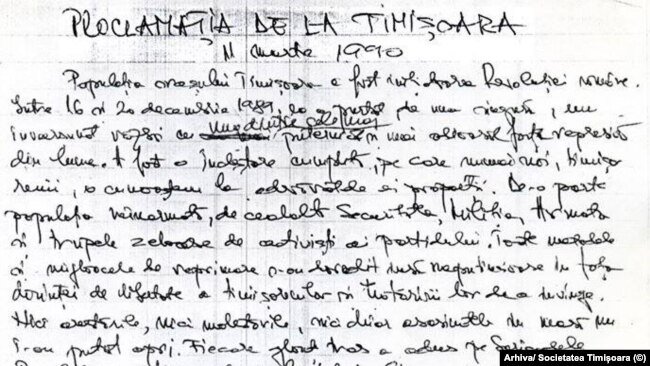 PROCLAMAȚIA DE LA TIMIȘOARA
11 martie 1990
Populația orașului Timișoara a fost inițiatoarea Revoluției române.
Între 16 și 20 decembrie 1989, ea a purtat, de una singură, un
unul dintre cele mai
înverșunat război cu puternice și mai odioase forțe represive
din lume. A fost o încleștare cumplită, pe care numai noi, timișo
renii, o cunoaștem la adevăratele ei proporții. De-o parte
populația neînarmată, de cealaltă Securitatea, Miliția, Armata
și trupele zeloase de activiști ai partidului. Toate metodele
și mijloacele de reprimare s-au dovedit însă neputincioase în fața
dorinței de libertate a timișorenilor și hotărârii lor de a învinge.
Nici arestările, nici molestările, nici chiar asasinatele în masă nu
i-au putut opri. Fiecare glonț tras a adus pe
Arhiva/ Societatea Timișoara (©)